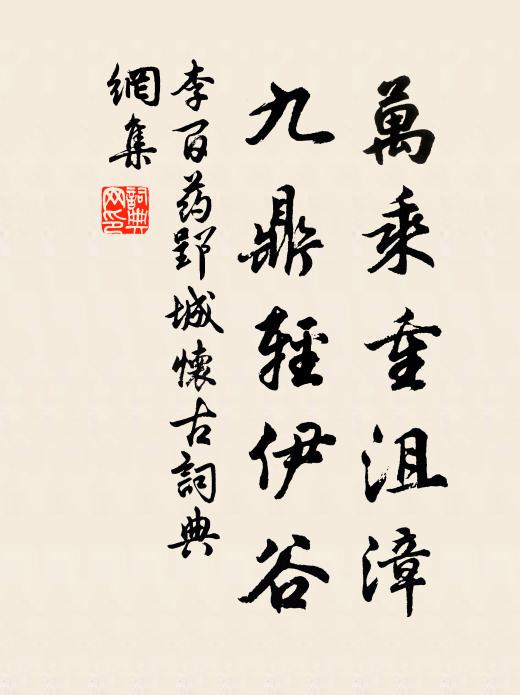 萬乘重沮漳
九鼎輕伊谷
李百药郢城懷古詞典
網集
詞典
网印